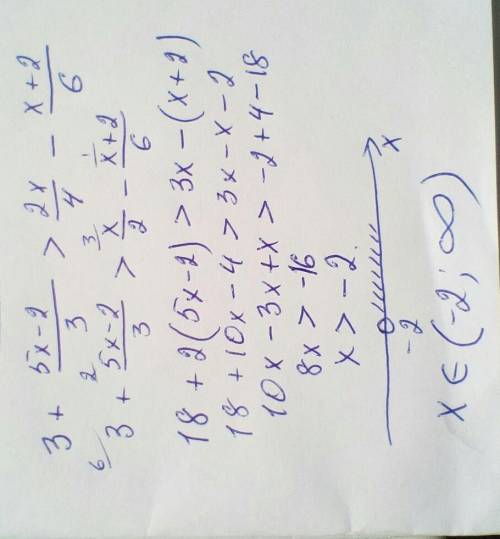 3 + (5x-2)/3 > 2x/4 - (x+2)/6
⁶/3 + ²/(5x-2)/3 > ³/x/2 - ¹/(x+2)/6
18 + 2(5x-2) > 3x - (x+2)
18 + 10x - 4 > 3x - x - 2
10x - 3x + x > -2 + 4 - 18
8x > -16
x > -2.
-2 x
x ∈ (-2; ∞)